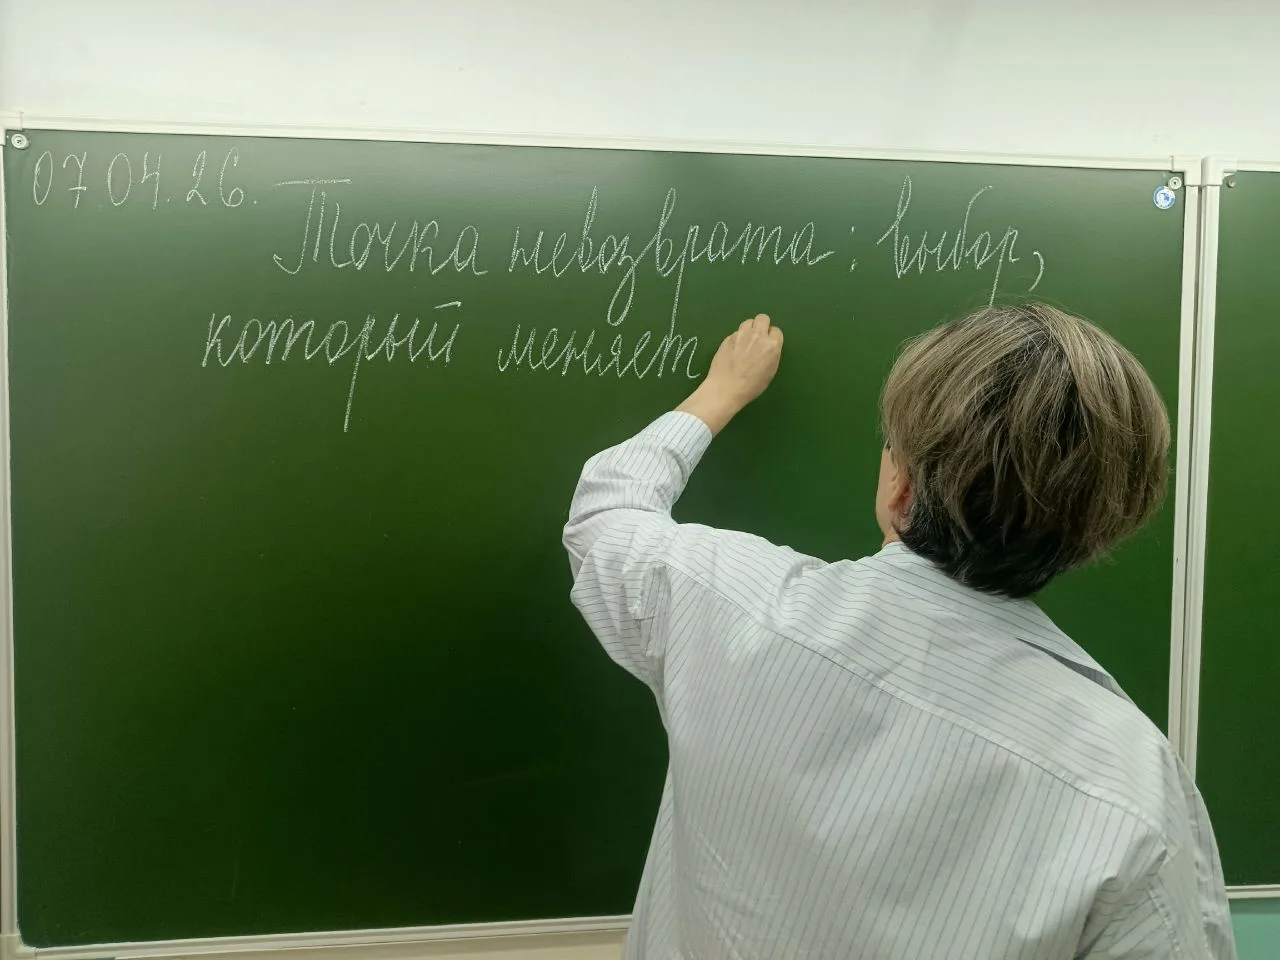 07.04.26.
Точка невозврата: выбор,
который меняет